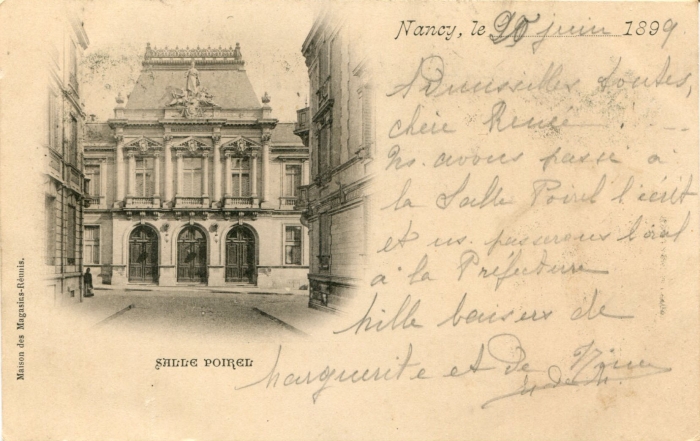 Nancy, le 20 juin 1899
toutes,
chère Renée
Ns. avons passé à
la Salle Poirel l'écrit
et ns. passerons l'oral
à la Préfecture
Mille baisers de
Marguerite et de
SALLE POIREL
Maison des Magasins-Réunis.